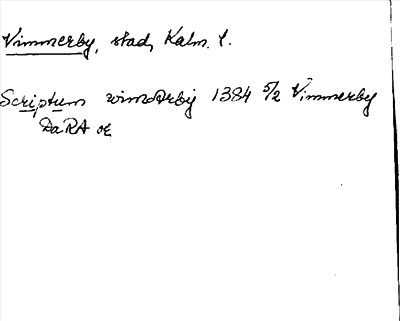 Vimmerby, stad, Kalm. l.
Scriptum wimdrby 1384 5/2 Vimmerby
DaRA or